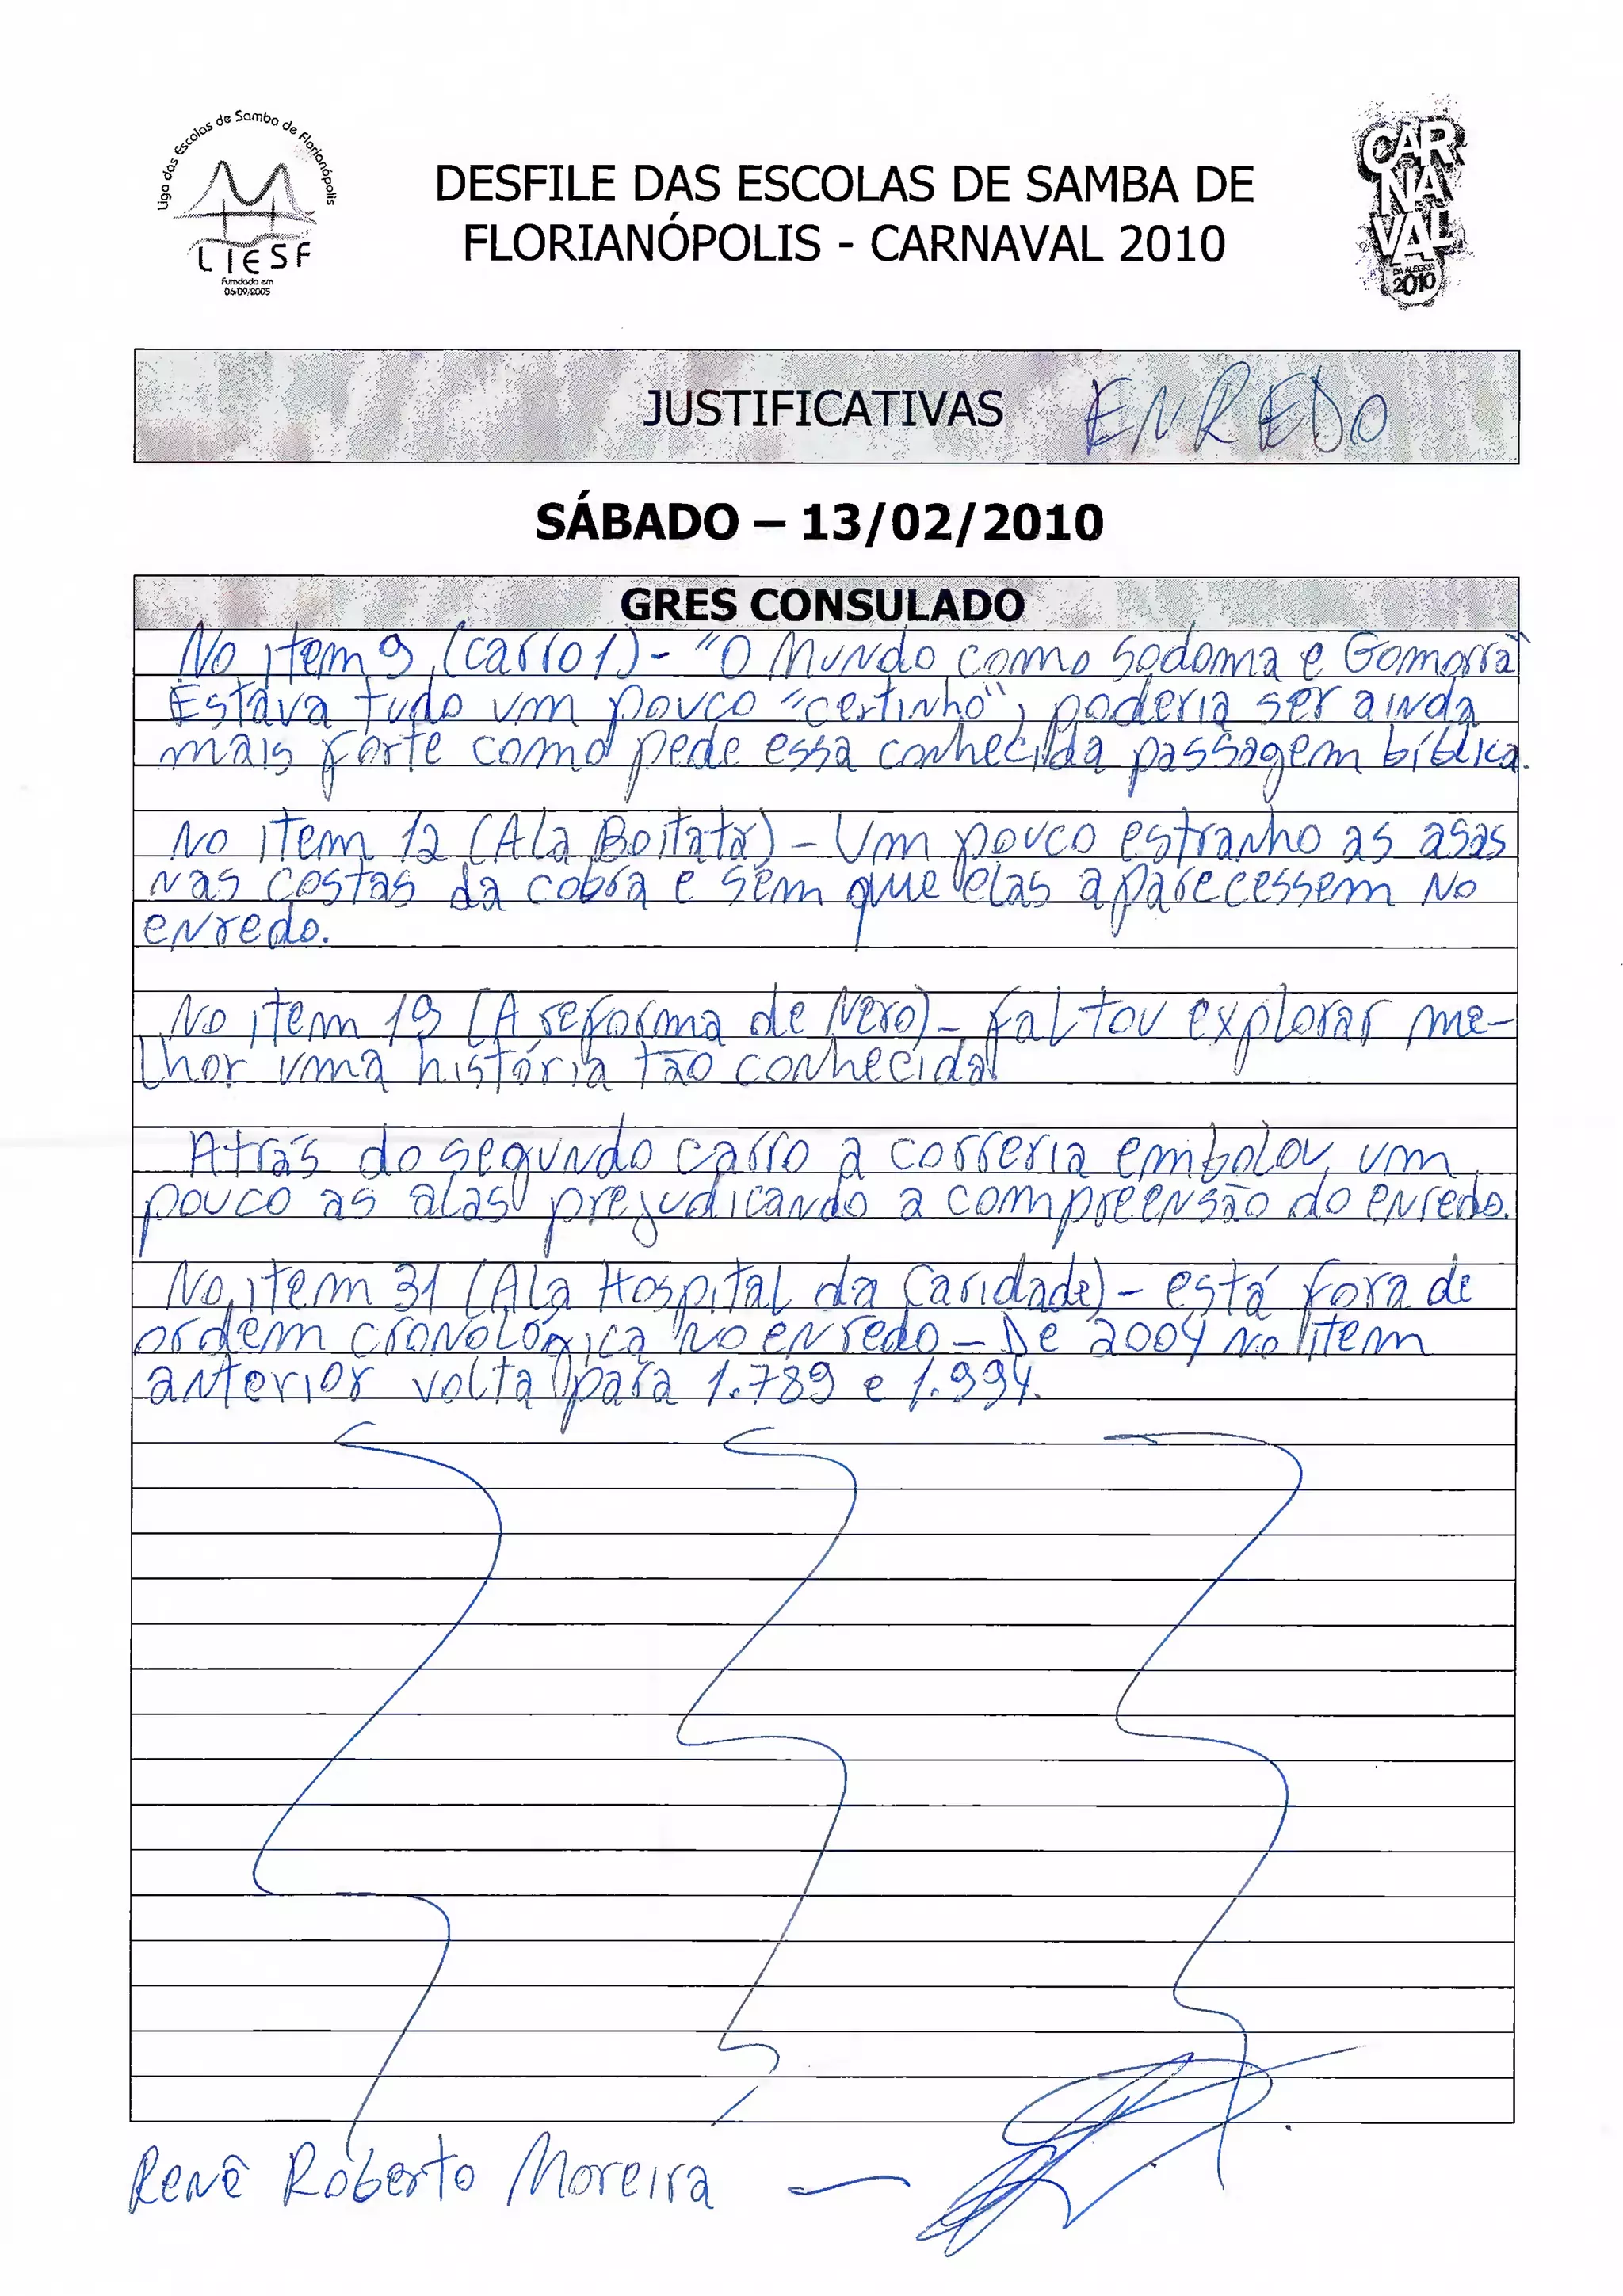 Liga das Escolas de Samba de Florianópolis
LIESF
Fundada em
06/09/2005
DESFILE DAS ESCOLAS DE SAMBA DE
FLORIANÓPOLIS - CARNAVAL 2010
CAR
NA
VAL
DA ALEGRIA
2010
JUSTIFICATIVAS ENREDO
SÁBADO – 13/02/2010
GRES CONSULADO
No item 9 (carro 1) - "O Mundo como Sodoma e Gomorra"
Estava tudo um pouco "certinho", poderia ser ainda
mais forte como pede essa conhecida passagem bíblica.
No item 12 (Ala Boitatá) - Um pouco estranho as asas
nas costas da cobra e sem que elas aparecessem no
enredo.
No item 19 (A reforma de Nero) - faltou explorar me-
lhor uma história tão conhecida!
Atrás do segundo carro a correria embolou um
pouco as alas prejudicando a compreensão do enredo.
No item 31 (Ala Hospital da Caridade) - está fora de
ordem cronológica no enredo - De 2004 no item
anterior volta para 1.789 e 1.994.
Renê Roberto Moreira